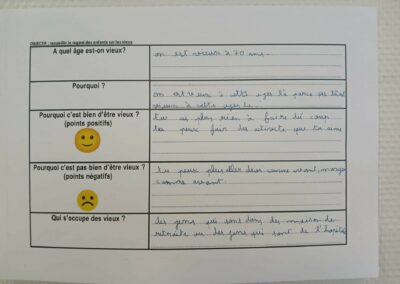 OBJECTIF : recueillir le regard des enfants sur les vieux
A quel âge est-on vieux?
on est vieux a 70 ans.
Pourquoi ?
on est vieux a cette age là parce que
vieux a cette age là.
Pourquoi c'est bien d'être vieux ?
(points positifs)
tu as plus rien a faire
tu peux faire des que tu aime
Pourquoi c'est pas bien d'être vieux ?
(points négatifs)
tu peux plus aller comme avant, manger
comme avant.
Qui s'occupe des vieux ?
des gens qui sont dans des maison de
retraite ou des gens qui sont de l'hopital